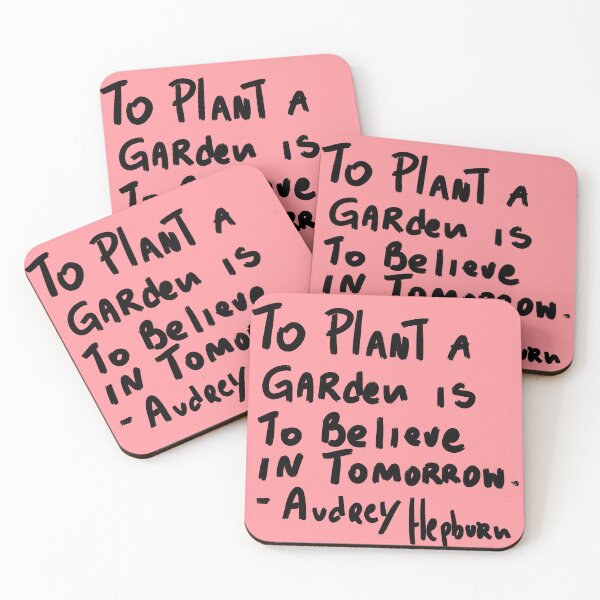 TO PLANT A
GARden IS
TO PLANT A
GARden IS
To Believe
IN TOMORROW.
burn
TO PLANT A
GARden IS
To Believe
IN TOMO
- AudREY
TO PLANT A
GARden IS
To Believe
IN TOMORROW.
- AudREY Hepburn